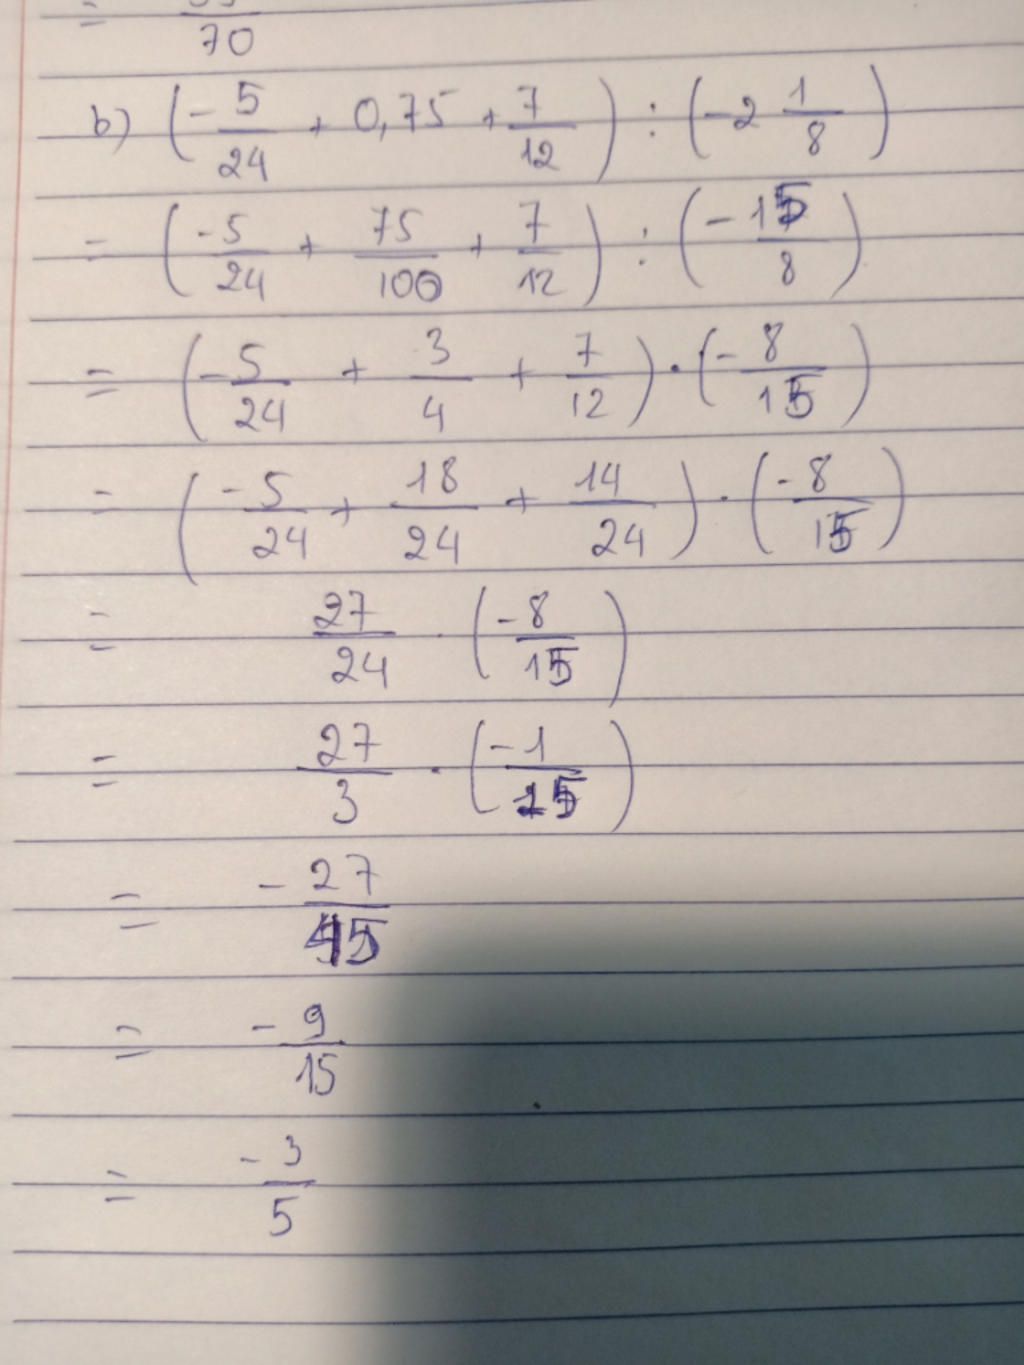 = 70
b) (-5/24 + 0,75 + 7/12) : (-2 1/8)
= (-5/24 + 75/100 + 7/12) : (-15/8)
= (-5/24 + 3/4 + 7/12) · (-8/15)
= (-5/24 + 18/24 + 14/24) · (-8/15)
= 27/24 · (-8/15)
= 27/3 · (-1/15)
= -27/45
= -9/15
= -3/5